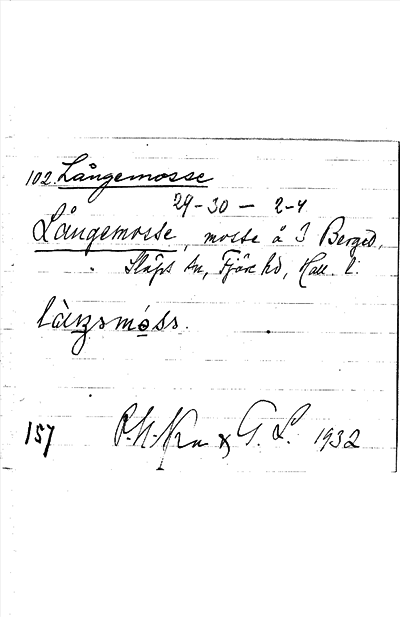 102. Långemosse
29-30 — 2-4
Långemosse, mosse å 3 Berged,
Släps sn, Fjäre hd, Hall. l.
157
G. L. 1932